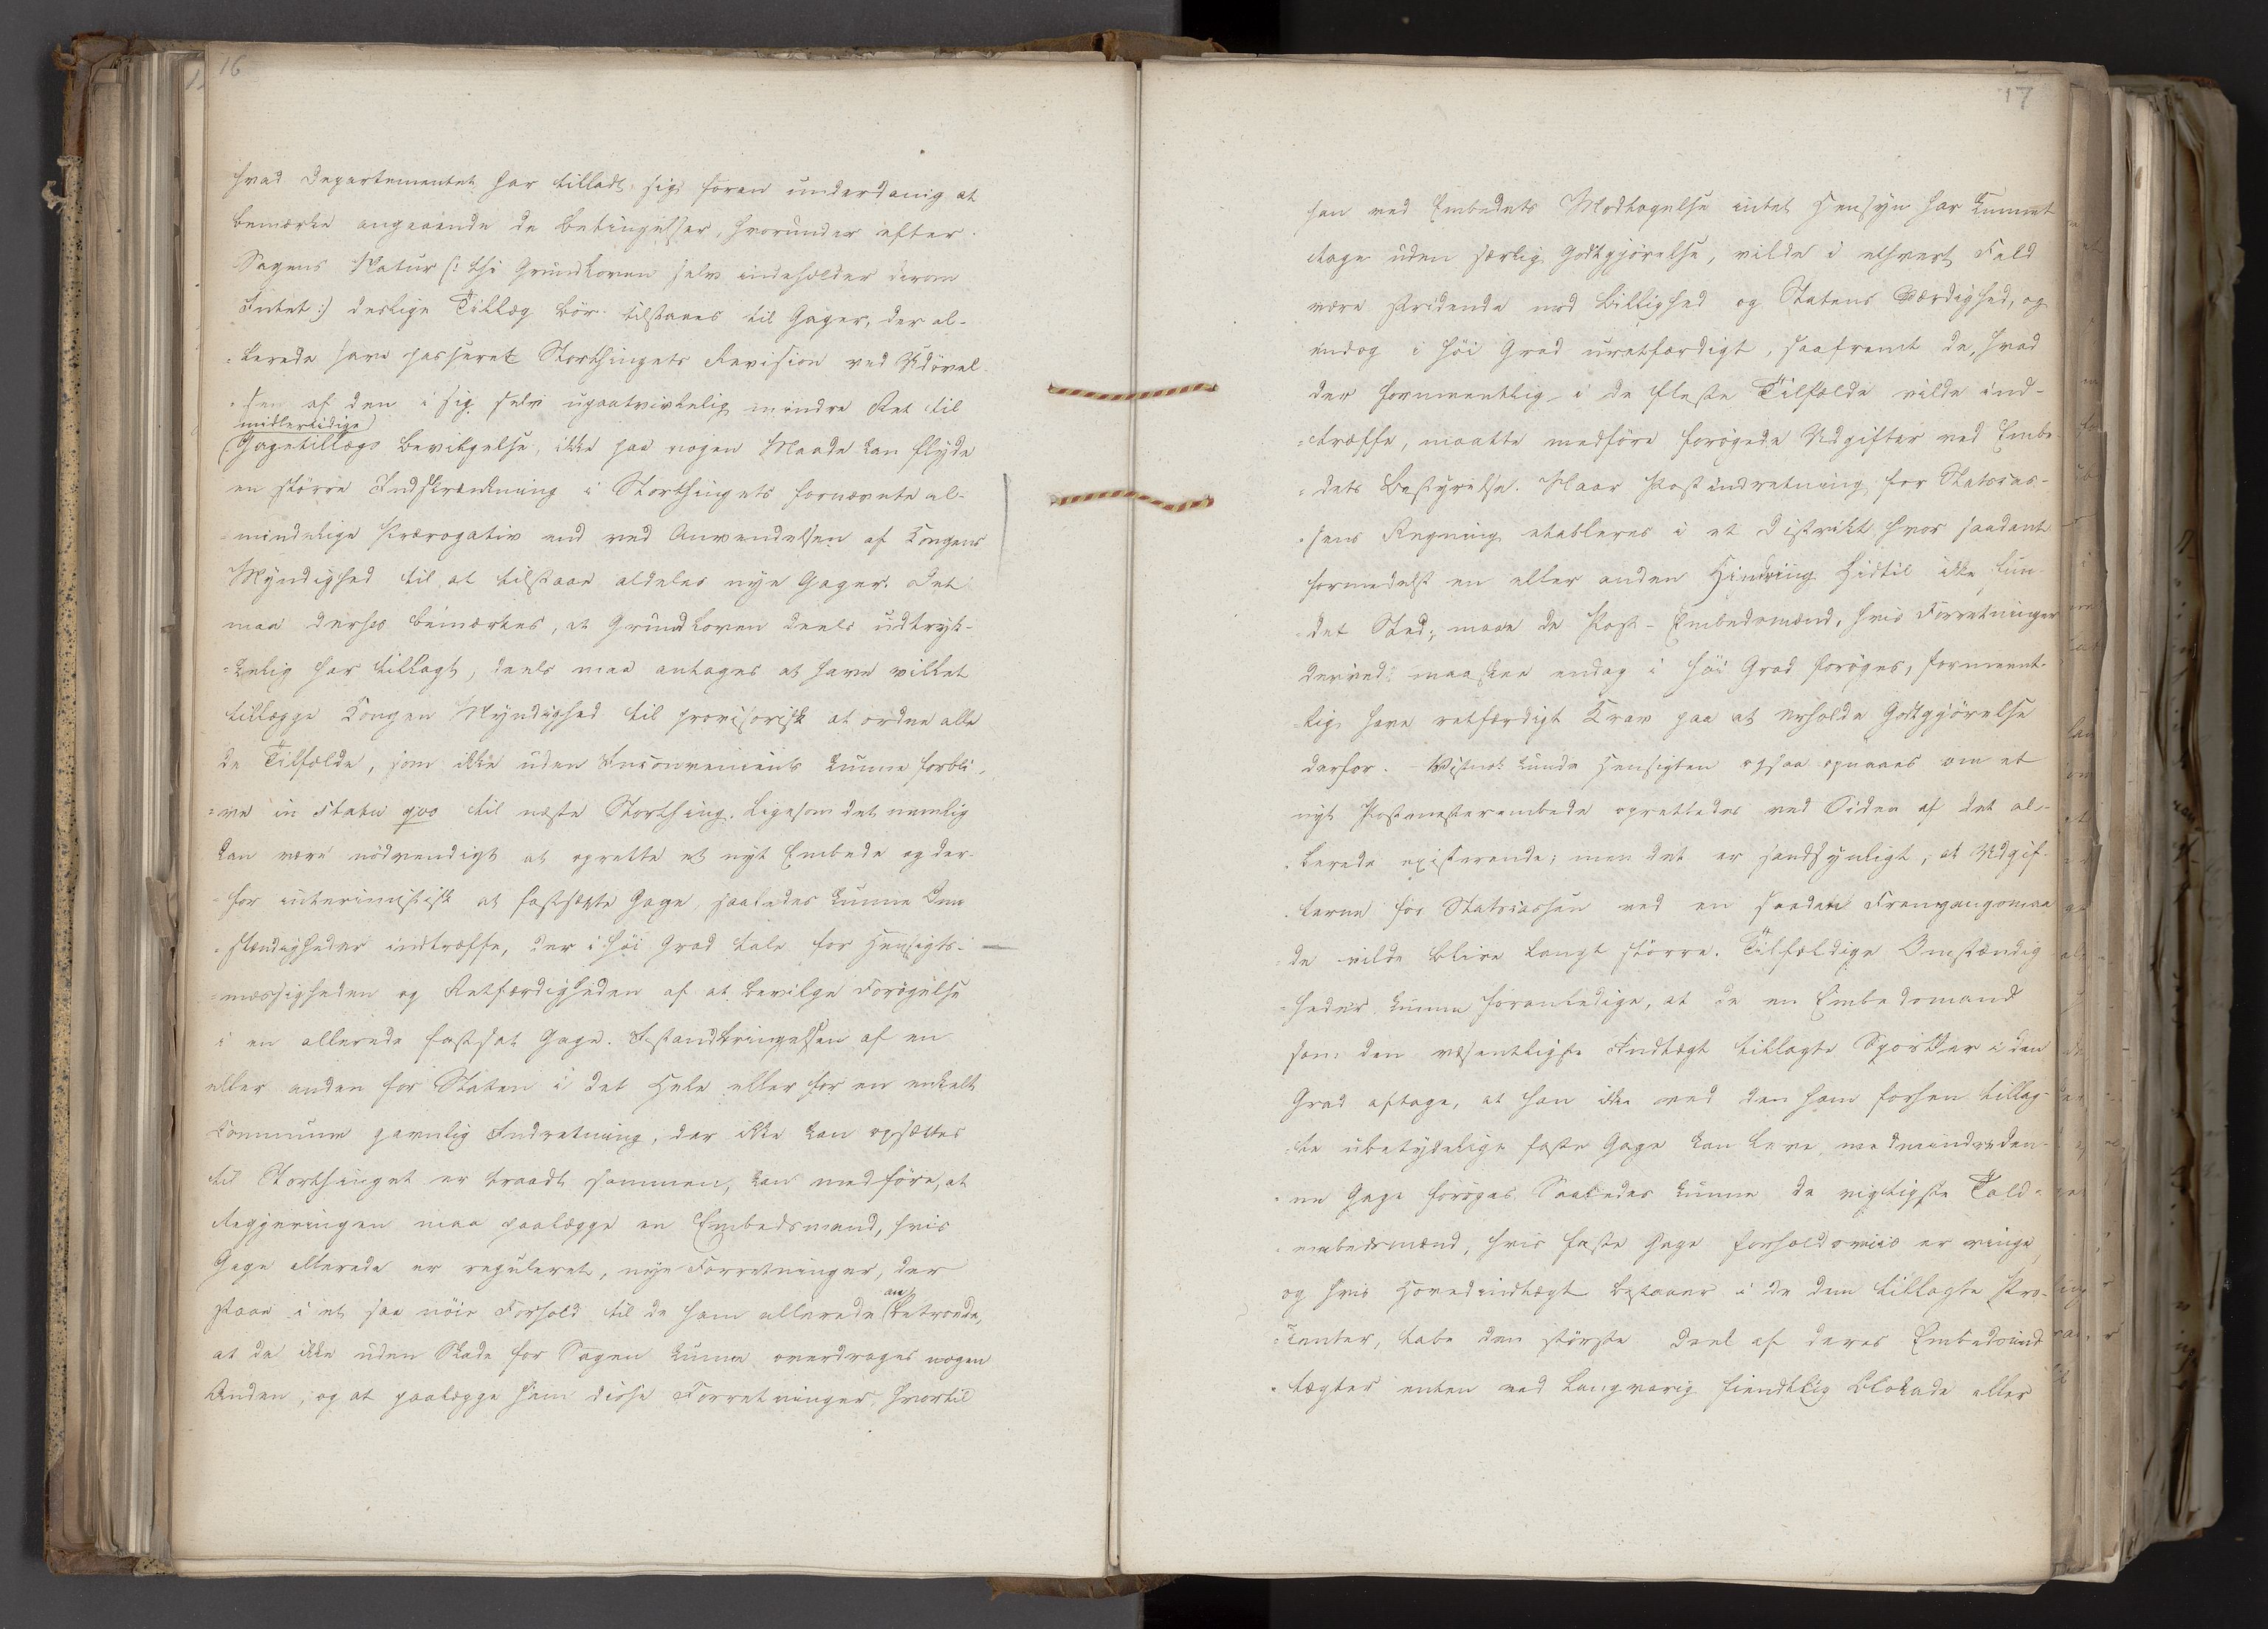 16
hvad Departementet har tilladt sig foran underdanig at
bemærke angaaende de Betingelser, hvorunder efter
Sagens Natur /: thi Grundloven selv indeholder derom
Intet :/ deslige Tillæg bör tilstaaes til Gager, der al-
=lerede have passeret Storthingets Revision ved Udövel-
=sen af den i sig selv upaatvivlelig mindre Ret til
midlertidige
Gagetillægs Bevilgelse, ikke paa nogen Maade kan flyde
en större Indskrænkning i Storthingets fornævnte al-
=mindelige Prærogativ end ved Anvendelsen af Kongens
Myndighed til at tilstaae aldeles nye Gager. Det
maa derhos bemærkes, at Grundloven deels udtryk-
=kelig har tillagt, deels maa antages at have villet
tillægge Kongen Myndighed til provisorisk at ordne alle
de Tilfælde, som ikke uden Inconvenients kunne forbli-
=ve in statu qvo til næste Storthing. Ligesom det nemlig
kan være nödvendigt at oprette et nyt Embede og der-
=for interimistisk at fastsætte Gage, saaledes kunne Om-
=stændigheder indtræffe, der i höi Grad tale for Hensigts-
=mæssigheden og Retfærdigheden af at bevilge Forögelse
i en allerede fastsat Gage. Istandbringelsen af en
eller anden for Staten i det Hele eller for en enkelt
Commune gavnlig Indretning, der ikke kan opsættes
til Storthinget er traadt sammen, kan medföre, at
Regjeringen maa paalægge en Embedsmand, hvis
Gage allerede er reguleret, nye Forretninger, der
staae i et saa nöie Forhold til de ham allerede
an
betroede,
at de ikke uden Skade for Sagen kunne overdrages nogen
Anden, og at paalægge ham disse Forretninger, hvortil
17
han ved Embedets Modtagelse intet Hensyn har kunnet
tage uden særlig Godtgjörelse, vilde i ethvert Fald
være stridende mod Billighed og Statens Værdighed, og
endog i höi Grad uretfærdigt, saafremt de, hvad
der formeentlig i de fleste Tilfælde vilde ind-
=træffe, maatte medföre forögede Udgifter ved Embe-
=dets Bestyrelse. Naar Postindretning for Statscas-
=sens Regning etableres i et Distrikt hvor saadant
formedelst en eller anden Hindring hidtil ikke fun-
=det Sted, maae de Post-Embedsmænd, hvis Forretninger
derved maaskee endog i höi Grad foröges, formeent-
lig have retfærdigt Krav paa at erholde Godtgjörelse
derfor. Vistnok kunde Hensigten ogsaa opnaaes om et
nyt Postmesterembede oprettedes ved Siden af det al-
=lerede existerende; men det er sandsynligt, at Udgif-
=terne for Statscassen ved en saadan Fremgangsmaa-
=de vilde blive langt större. Tilfældige Omstændig-
=heder kunne foranledige, at de en Embedsmand
som den væsentligste Indtægt tillagte Sportler i den
Grad aftage, at han ikke ved den ham forhen tillag-
=te ubetydelige faste Gage kan leve, medmindre den-
=ne Gage foröges. Saaledes kunne de vigtigste Told-
=embedsmænd, hvis faste Gage forholdsviis er ringe
og hvis Hovedindtægt bestaaer i de dem tillagte Pro-
=center, tabe den störste Deel af deres Embedsind-
=tægter enten ved langvarig fiendtlig Blokade eller